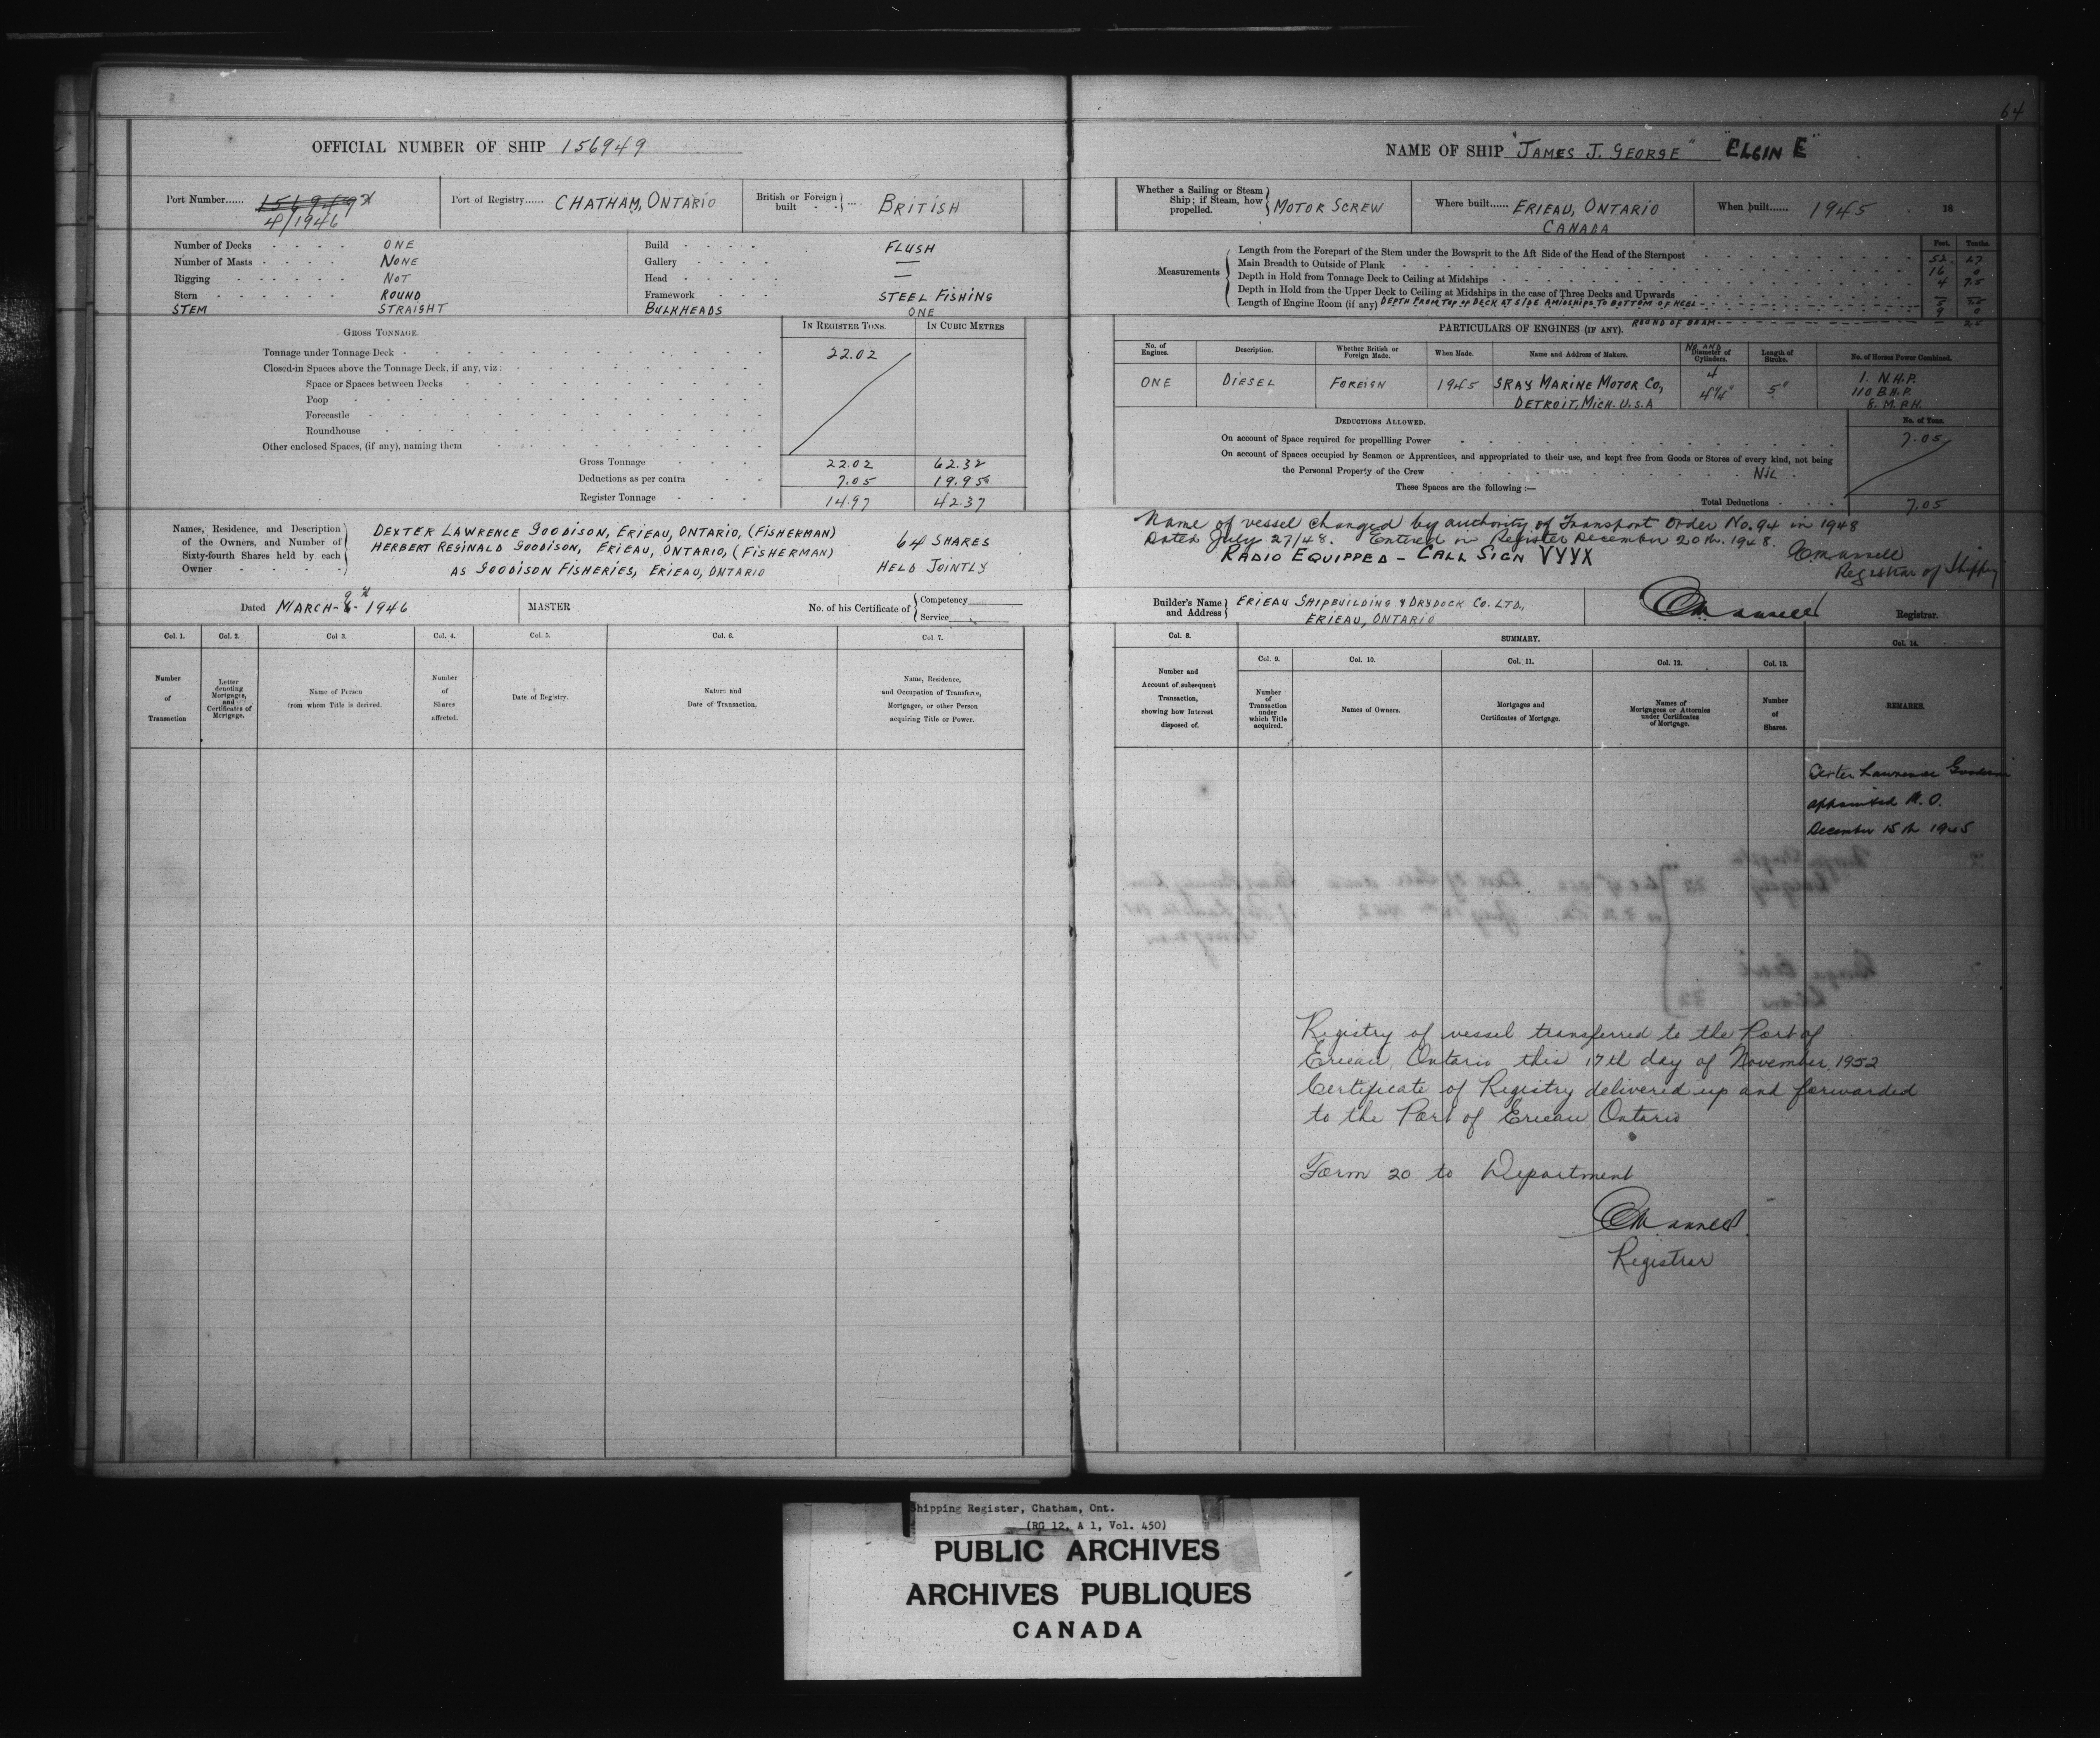 64
OFFICIAL NUMBER OF SHIP 156949
Port Number...... 156949
4/1946
Port of Registry...... CHATHAM, ONTARIO
British or Foreign built - - } .... BRITISH
Number of Decks - - - - ONE
Number of Masts - - - - NONE
Rigging - - - - NOT
Stern - - - - ROUND
STEM STRAIGHT
Build - - - - FLUSH
Gallery - - - - —
Head - - - - —
Framework - - - STEEL FISHING
BULKHEADS ONE
GROSS TONNAGE.
IN REGISTER TONS. IN CUBIC METRES
Tonnage under Tonnage Deck - 22.02
Closed-in Spaces above the Tonnage Deck, if any, viz:
Space or Spaces between Decks
Poop
Forecastle
Roundhouse
Other enclosed Spaces, (if any), naming them
Gross Tonnage 22.02 62.32
Deductions as per contra 7.05 19.95
Register Tonnage 14.97 42.37
Names, Residence, and Description of the Owners, and Number of Sixty-fourth Shares held by each Owner
DEXTER LAWRENCE GOODISON, ERIEAU, ONTARIO, (FISHERMAN)
HERBERT REGINALD GOODISON, ERIEAU, ONTARIO, (FISHERMAN)
AS GOODISON FISHERIES, ERIEAU, ONTARIO
64 SHARES
HELD JOINTLY
Dated MARCH - 9th - 1946
MASTER No. of his Certificate of { Competency
Service
Col. 1. Col. 2. Col 3. Col. 4. Col. 5. Col. 6. Col 7.
Number of Transaction
Letter denoting Mortgages, and Certificates of Mortgage.
Name of Person from whom Title is derived.
Number of Shares affected.
Date of Registry.
Nature and Date of Transaction.
Name, Residence, and Occupation of Transferee, Mortgagee, or other Person acquiring Title or Power.
NAME OF SHIP "JAMES J. GEORGE" "ELGIN E"
Whether a Sailing or Steam Ship; if Steam, how propelled. } MOTOR SCREW
Where built...... ERIEAU, ONTARIO
CANADA
When built...... 1945 18
Measurements
Feet. Tenths.
Length from the Forepart of the Stem under the Bowsprit to the Aft Side of the Head of the Sternpost 52. 27
Main Breadth to Outside of Plank 16 0
Depth in Hold from Tonnage Deck to Ceiling at Midships 4 75
Depth in Hold from the Upper Deck to Ceiling at Midships in the case of Three Decks and Upwards —
Length of Engine Room (if any) DEPTH FROM TOP OF DECK AT SIDE AMIDSHIPS TO BOTTOM OF KEEL
9 0
ROUND OF BEAM - 25
PARTICULARS OF ENGINES (IF ANY).
No. of Engines. Description. Whether British or Foreign Made. When Made. Name and Address of Makers. No. AND Diameter of Cylinders. Length of Stroke. No. of Horses Power Combined.
ONE DIESEL FOREIGN 1945 GRAY MARINE MOTOR CO, 4 5" 1. N.H.P.
DETROIT, MICH. U.S.A 4¼" 110 B.H.P.
8. M.P.H.
DEDUCTIONS ALLOWED. No. of Tons.
On account of Space required for propellling Power 7.05
On account of Spaces occupied by Seamen or Apprentices, and appropriated to their use, and kept free from Goods or Stores of every kind, not being
the Personal Property of the Crew NIL
These Spaces are the following :—
Total Deductions 7.05
Name of vessel changed by authority of Transport Order No. 94 in 1948
Dated July 27/48. Entered in Register December 20th. 1948.
RADIO EQUIPPED - CALL SIGN VYYX
Registrar of Shipping
Builder's Name and Address } ERIEAU SHIPBUILDING & DRYDOCK CO. LTD,
ERIEAU, ONTARIO
Registrar.
Col. 8. SUMMARY. Col. 14.
Col. 9. Col. 10. Col. 11. Col. 12. Col. 13.
Number and Account of subsequent Transaction, showing how Interest disposed of.
Number of Transaction under which Title acquired.
Names of Owners.
Mortgages and Certificates of Mortgage.
Names of Mortgagees or Attornies under Certificates of Mortgage.
Number of Shares.
REMARKS.
Dexter Lawrence Goodison
appointed M.O.
December 15th 1945
Registry of vessel transferred to the Port of
Erieau, Ontario this 17th day of November, 1952
Certificate of Registry delivered up and forwarded
to the Port of Erieau Ontario
Form 20 to Department
Registrar
Shipping Register, Chatham, Ont.
(RG 12, A 1, Vol. 450)
PUBLIC ARCHIVES
ARCHIVES PUBLIQUES
CANADA